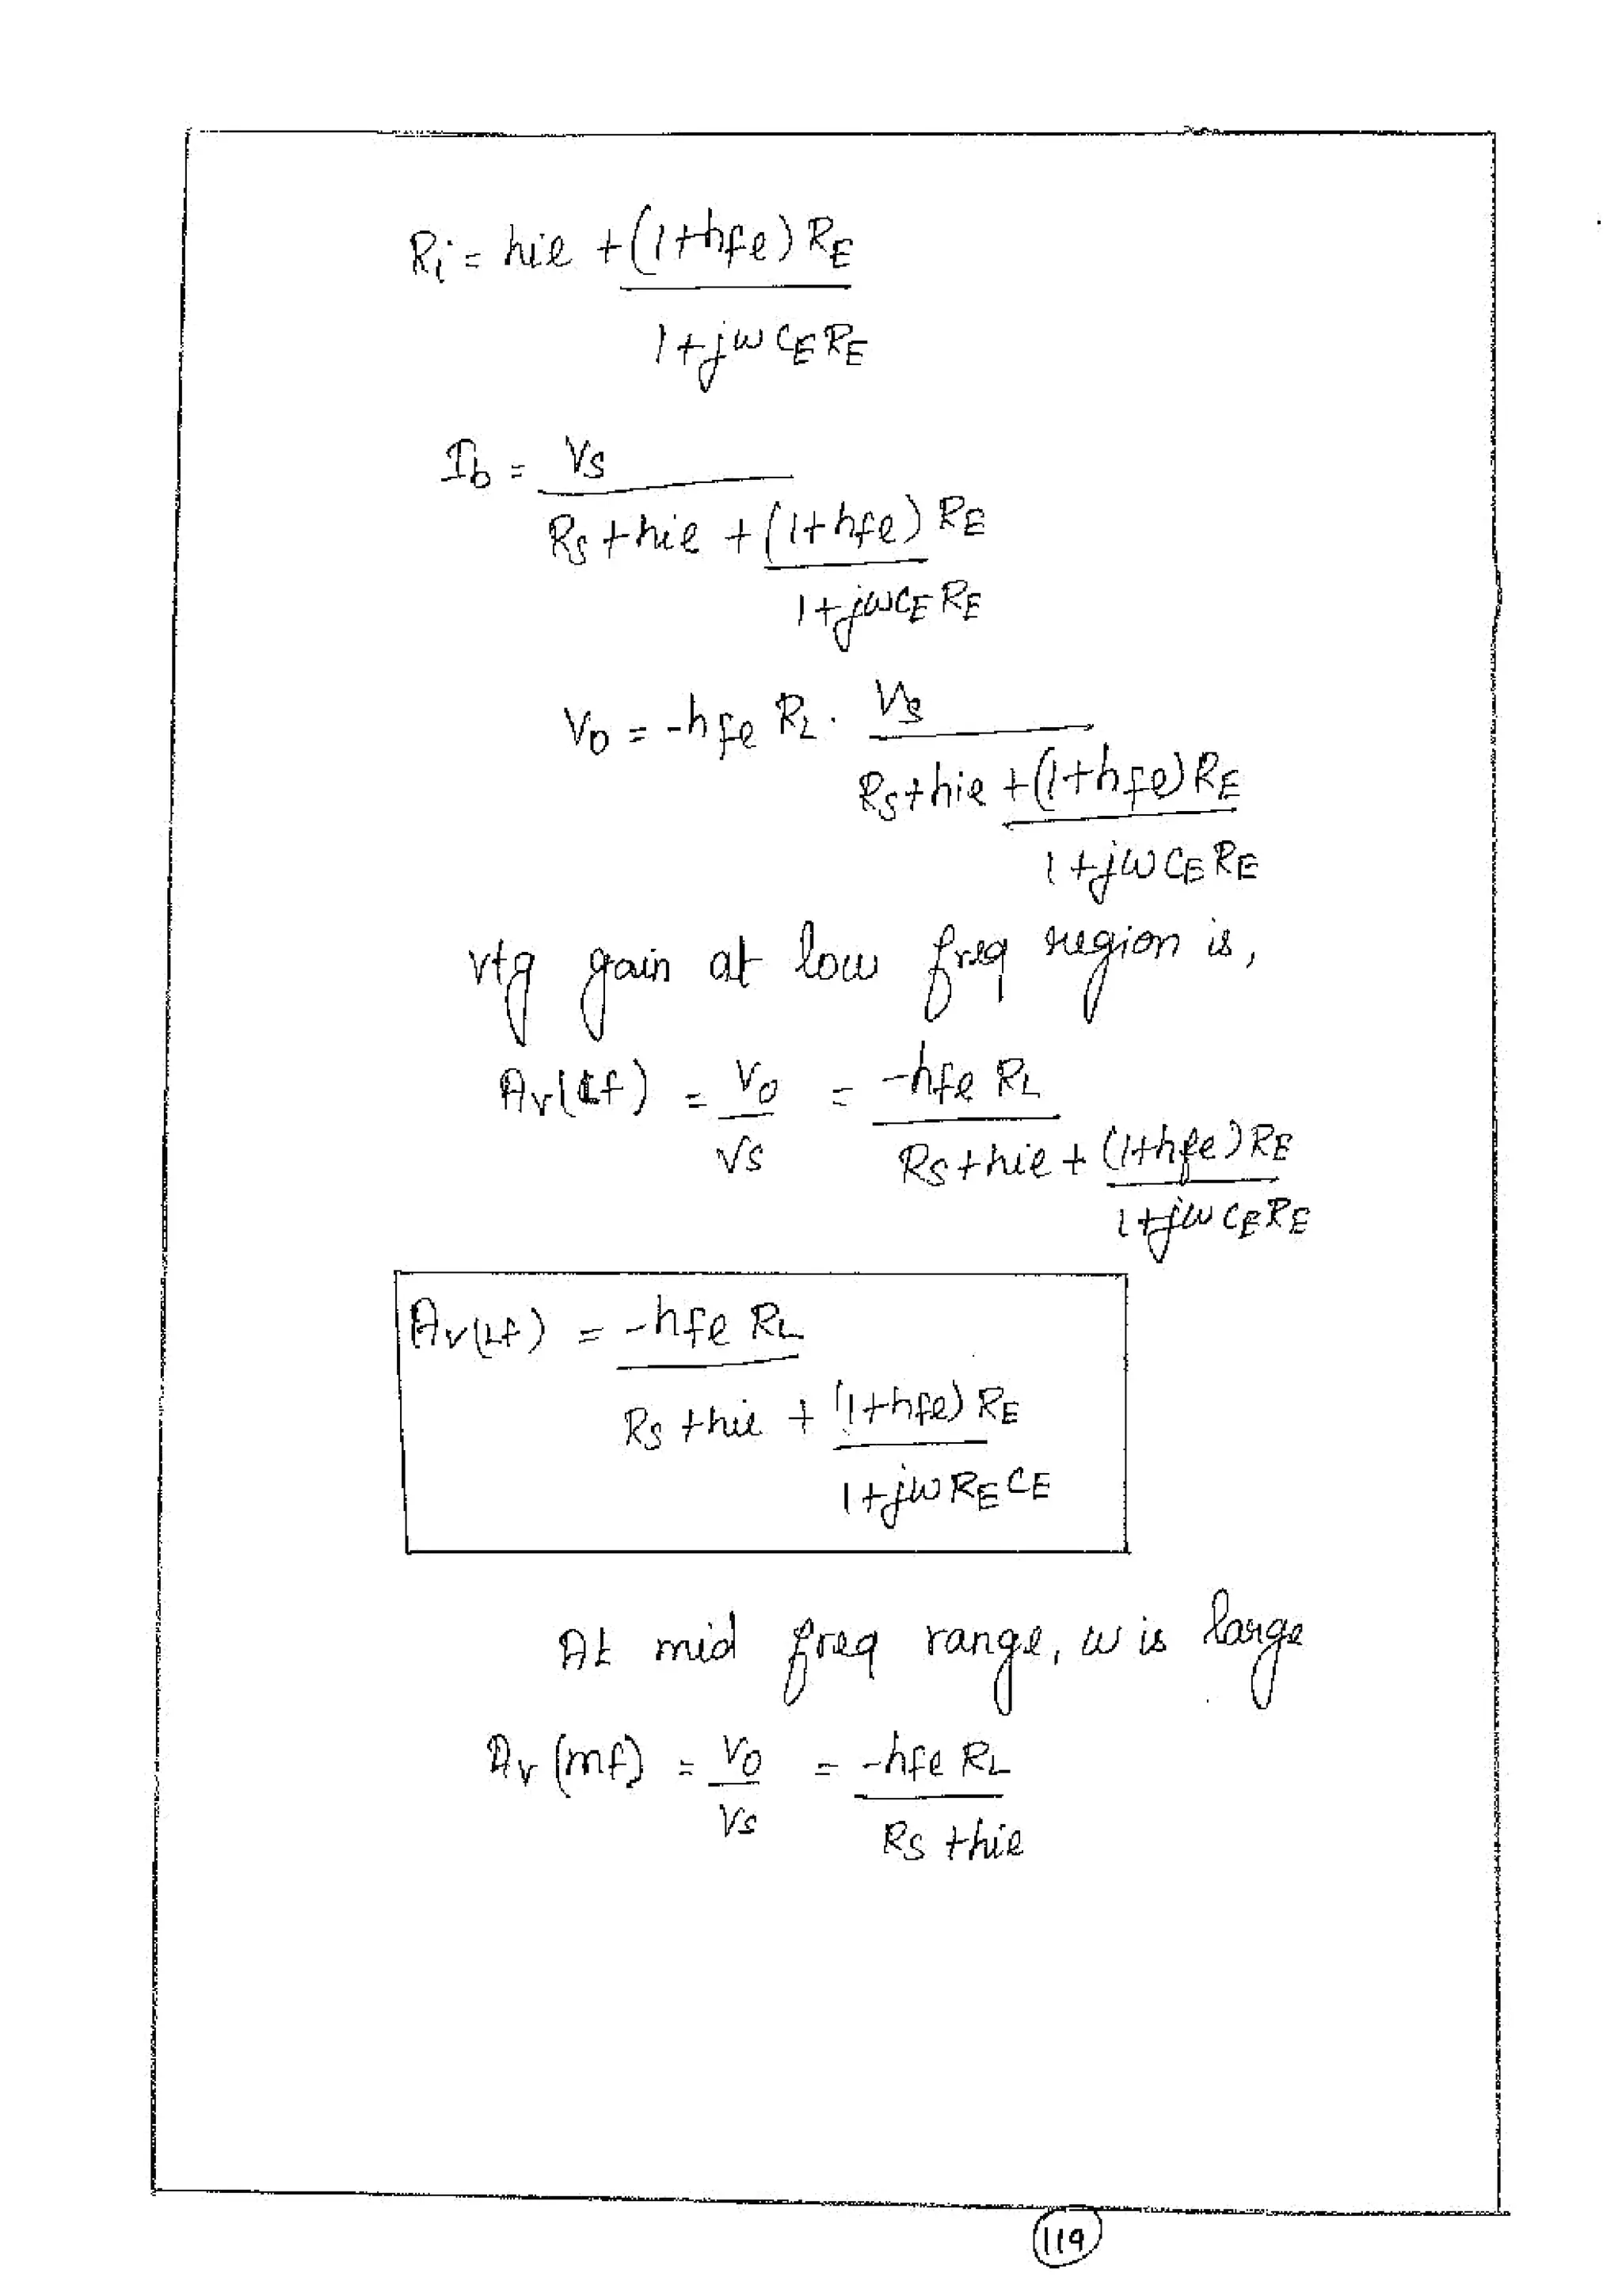 Ri = hie + (1+hfe) RE
1+jw CE RE
Ib = Vs
Rs + hie + (1+hfe) RE
1+jwCE RE
Vo = -hfe RL . Vs
Rs+hie +(1+hfe) RE
1+jw CE RE
vtg gain at low freq region is,
Av(Lf) = Vo = -hfe RL
Vs Rs + hie + (1+hfe) RE
1+jw CE RE
Av(Lf) = -hfe RL
Rs + hie + (1+hfe) RE
1+jw RE CE
At mid freq range, w is large
Av (mf) = Vo = -hfe RL
Vs Rs + hie
119